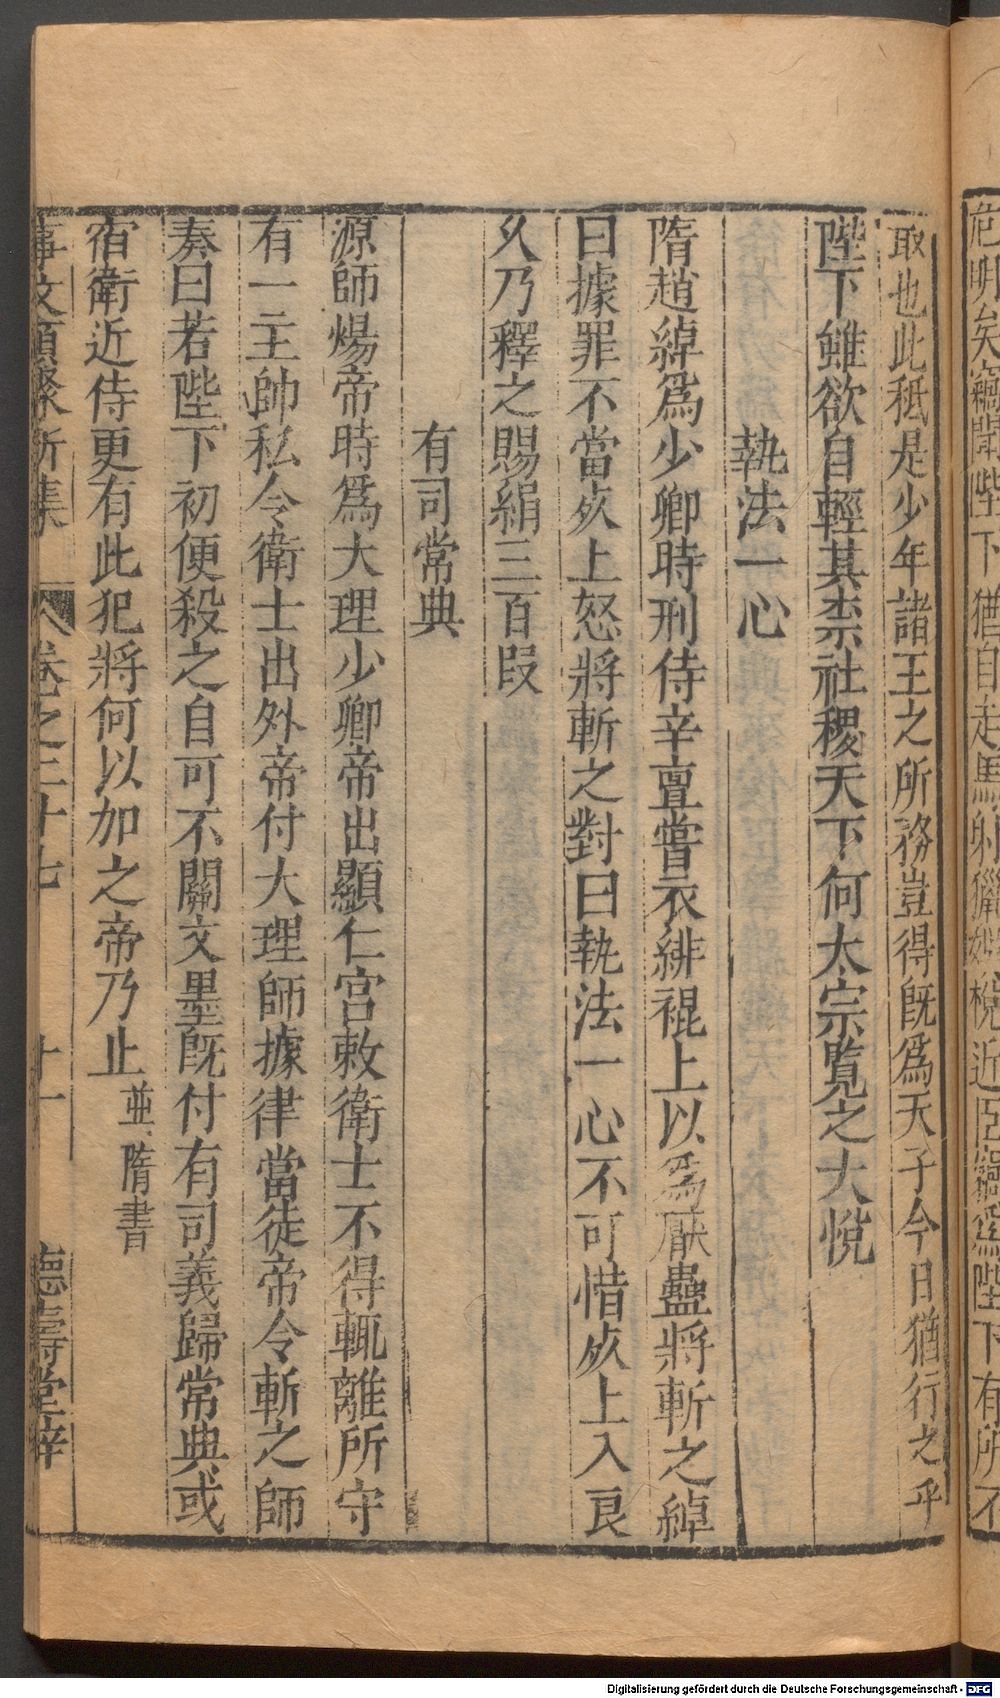 危明矣竊聞陛下猶自走馬射獵娯悅近臣竊爲陛下有所不
取也此秪是少年諸王之所務豈得旣爲天子今日猶行之乎
陛下雖欲自輕其柰社稷天下何太宗覧之大悅
執法一心
隋趙綽爲少卿時刑侍辛亶嘗衣緋裩上以爲厭蠱將斬之綽
曰據罪不當㱙上怒將斬之對曰執法一心不可惜㱙上入良
久乃釋之賜絹三百段
有司常典
源師煬帝時爲大理少卿帝出顯仁宮敕衛士不得輒離所守
有一主帥私令衛士出外帝付大理師據律當徒帝令斬之師
奏曰若陛下初便殺之自可不關文墨旣付有司義歸常典或
宿衛近侍更有此犯將何以加之帝乃止 並隋書
事文類聚新集 卷之二十七 十一 德壽堂梓
Digitalisierung gefördert durch die Deutsche Forschungsgemeinschaft - DFG